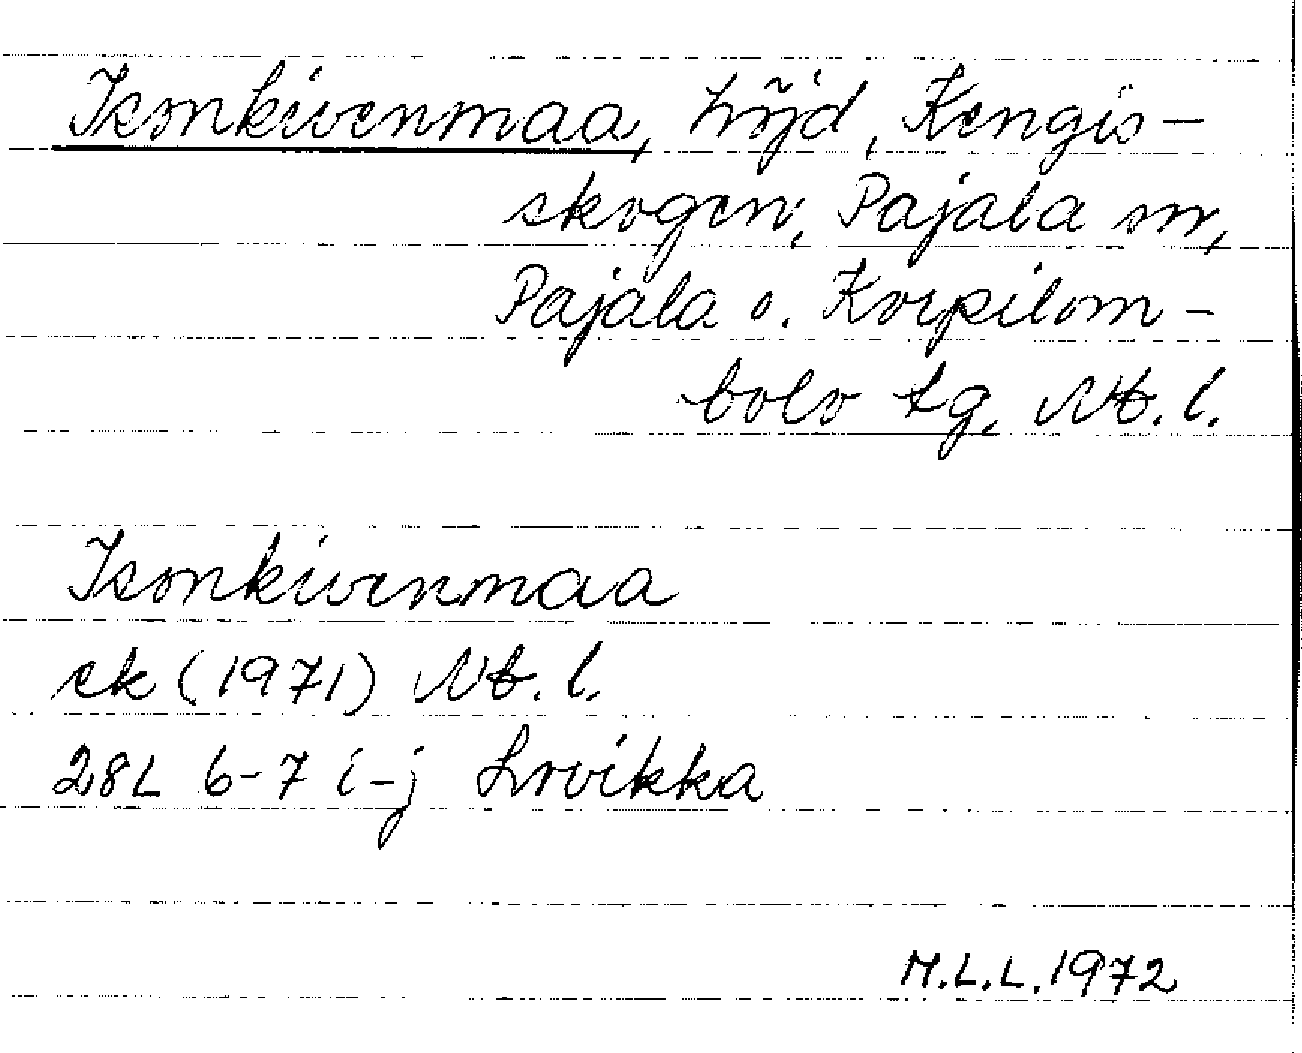 Isonkivenmaa, höjd, Kengis-
skogen, Pajala sn,
Pajala o. Korpilom-
bolo tg, Nb. l.
Isonkivenmaa
ek (1971) Nb. l.
28L 6-7 i-j Lovikka
M.L.L. 1972